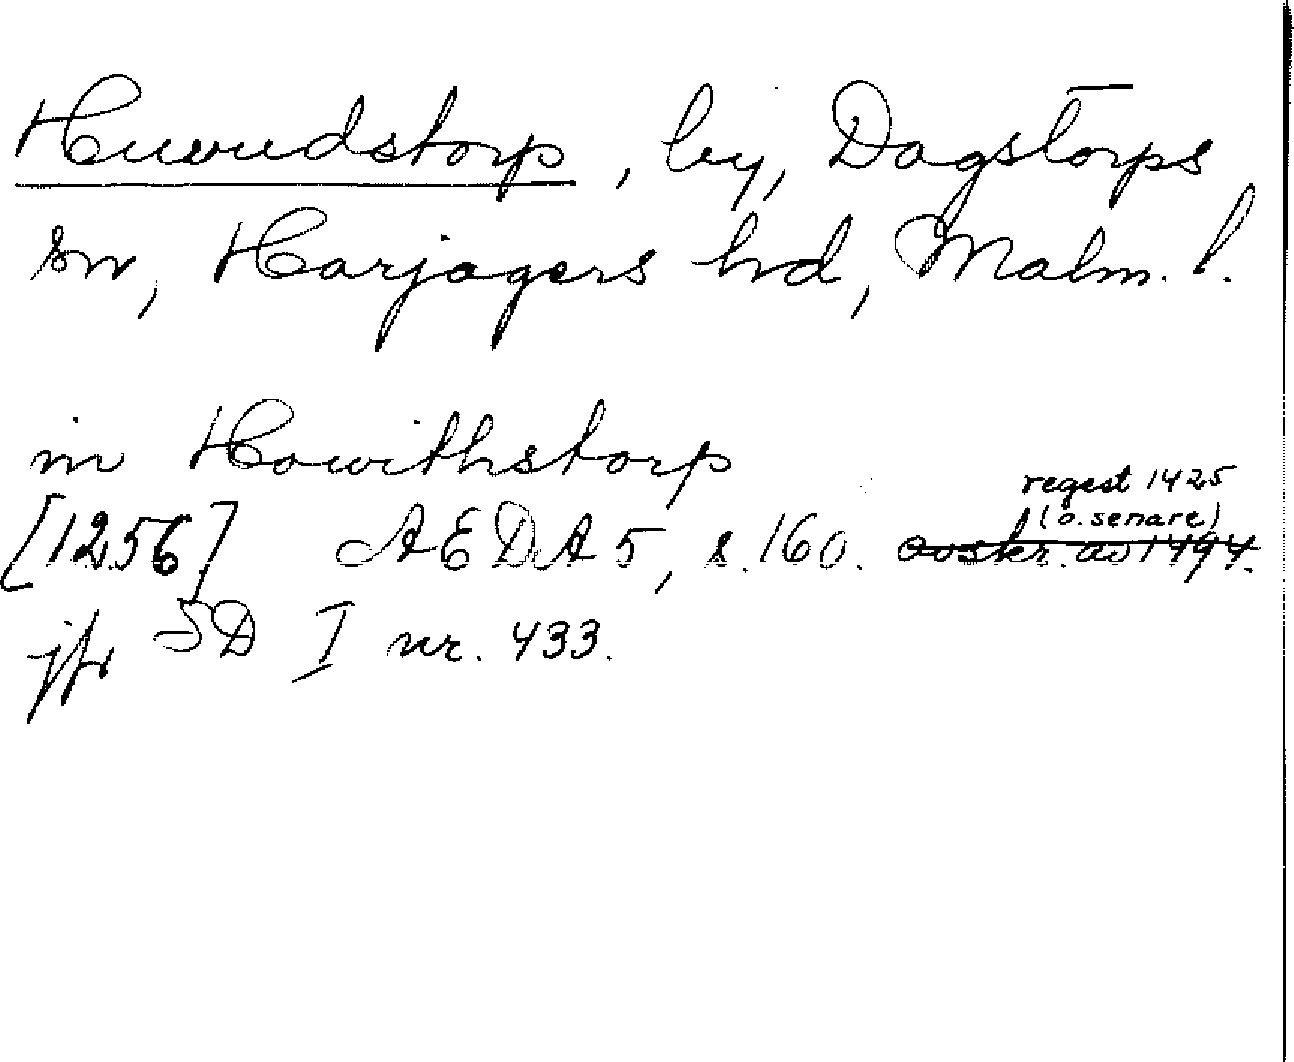 Huvudstorp, by, Dagstorps
sn, Harjagers hd, Malm. l.
in Howithstorp
regest 1425
(o. senare)
[1256] AEDA 5, s. 160. avskr. av 1494.
jfr SD I nr. 433.